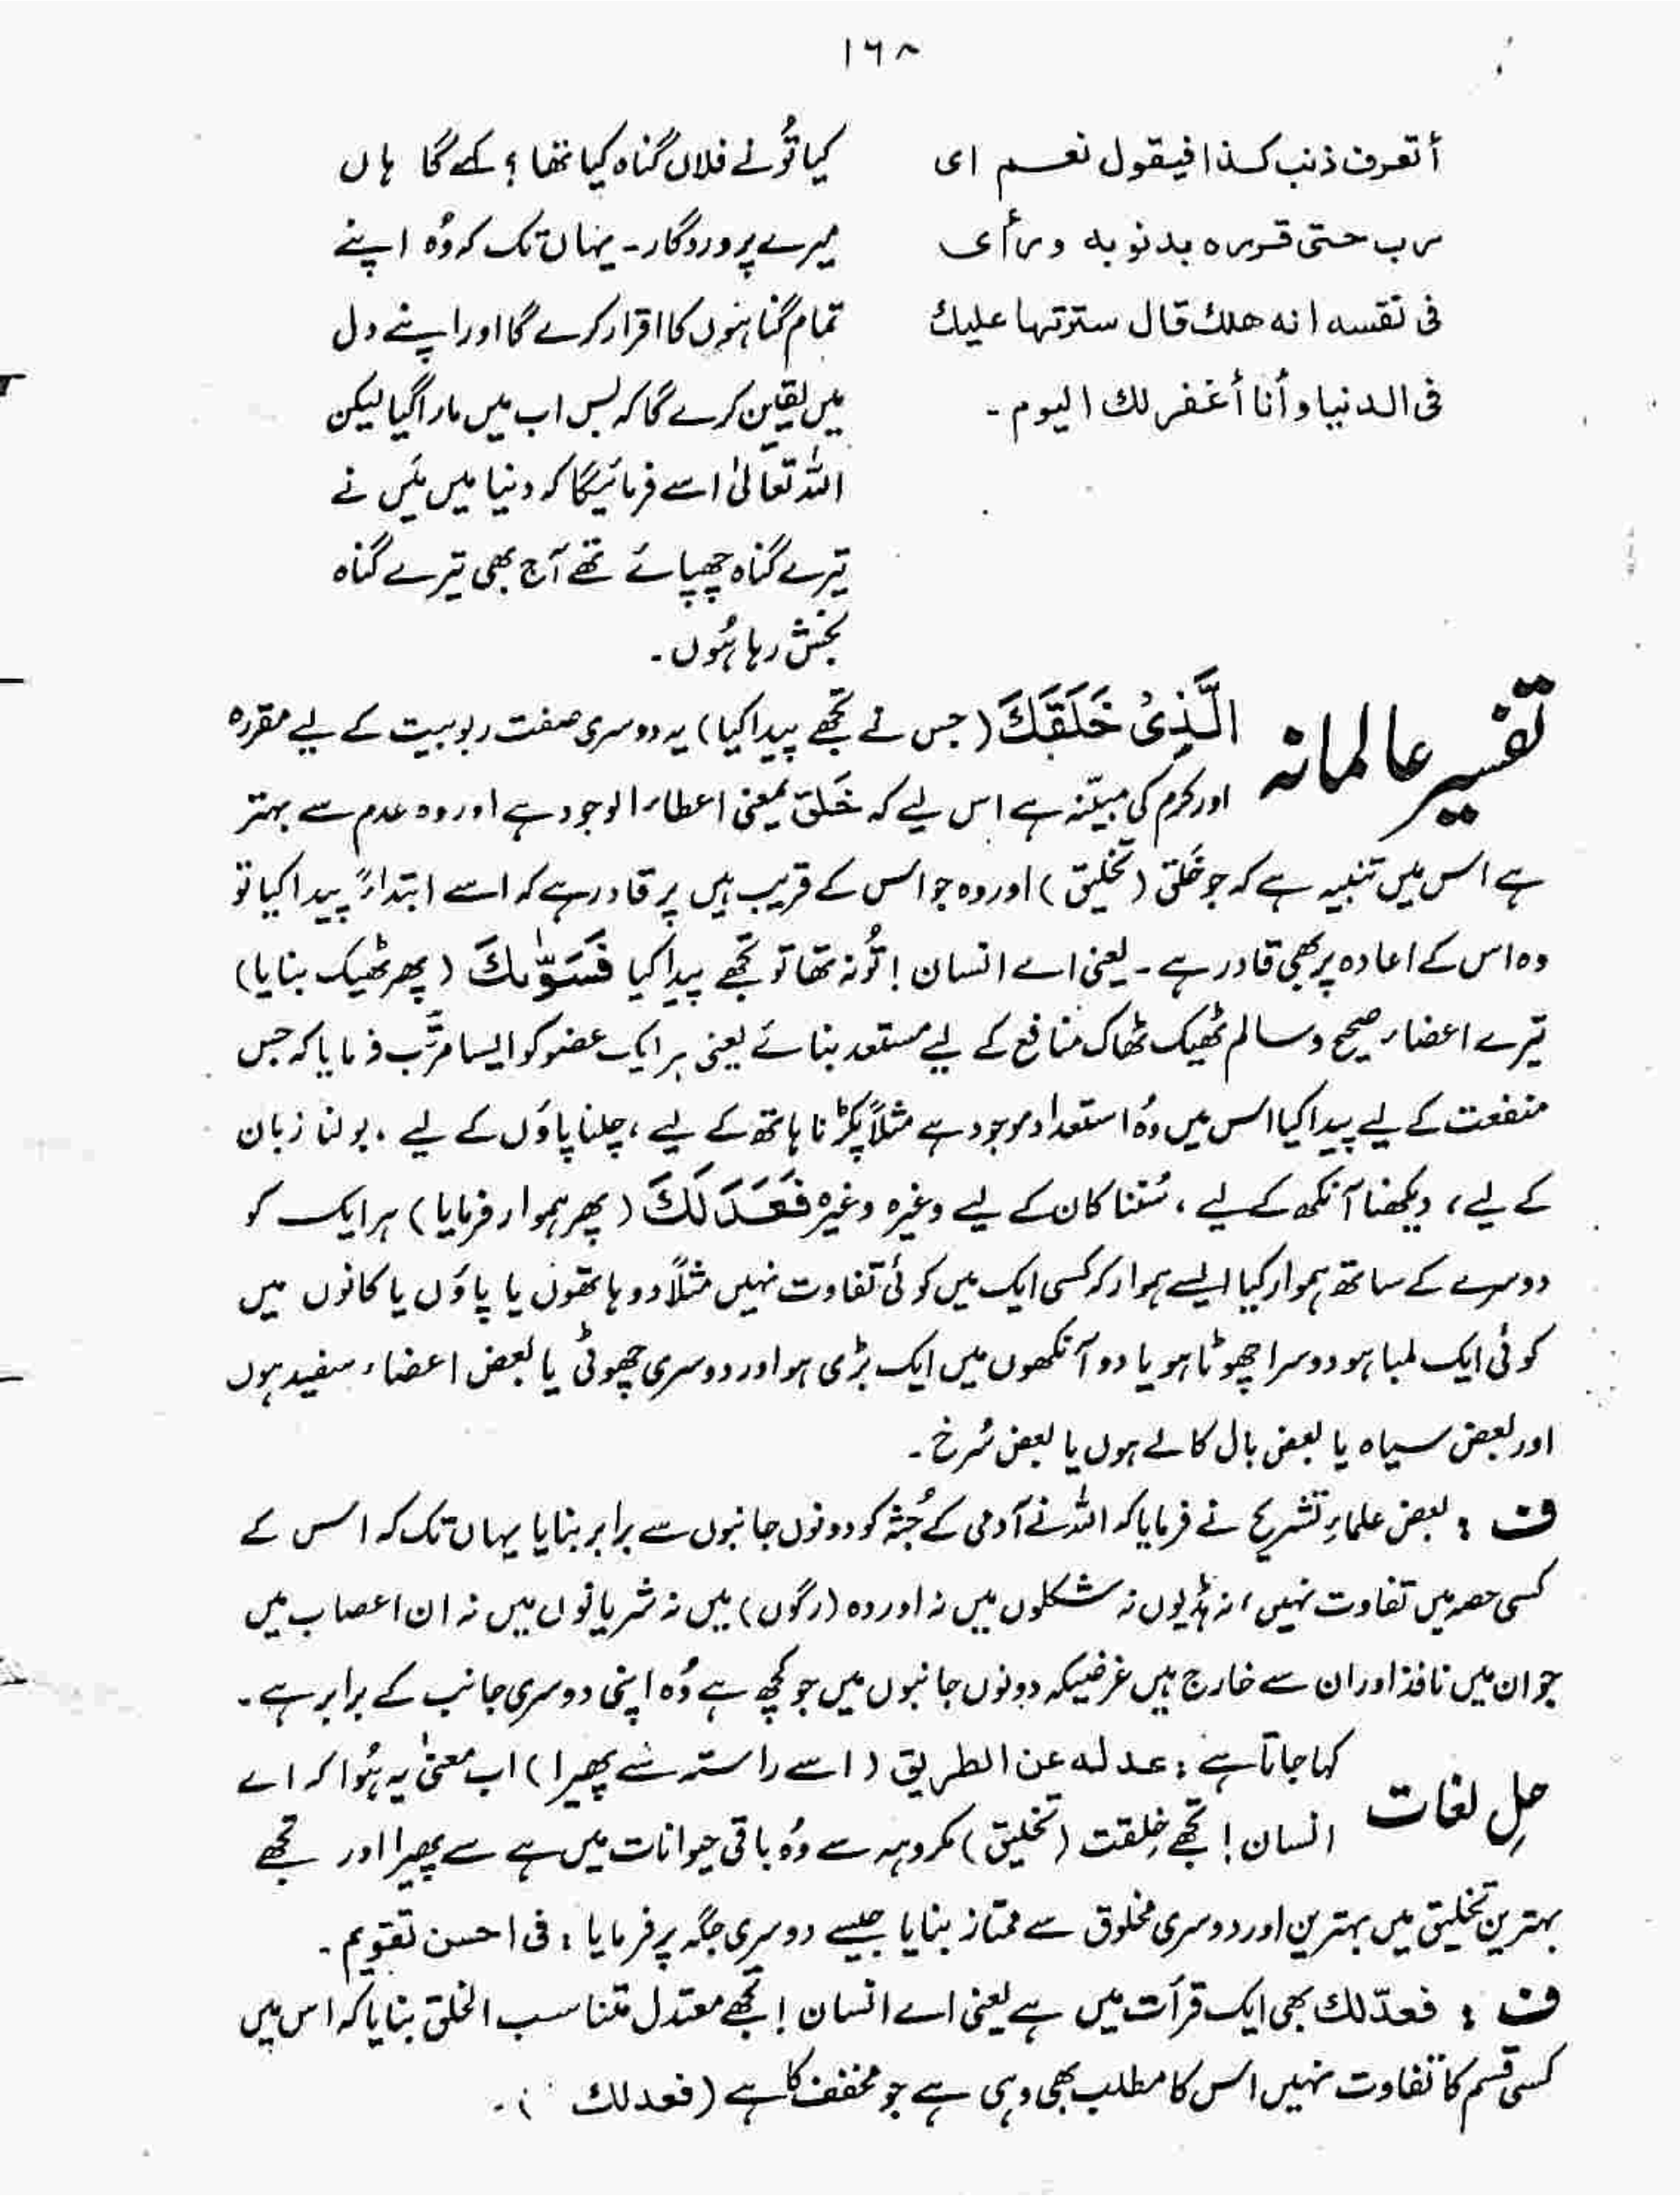 ١٦٨
أتعرف ذنب كذا فيقول نعم ای
رب حتى قرره بذنوبه ورأى
فی نفسه انه هلك قال سترتها عليك
فی الدنيا وأنا أغفر لك اليوم ۔
کیا تُو نے فلاں گناہ کیا تھا ؟ کہے گا ہاں
میرے پروردگار ۔ یہاں تک کہ وُہ اپنے
تمام گناہوں کا اقرار کرے گا اور اپنے دل
میں یقین کرے گا کہ بس اب میں مارا گیا لیکن
اللہ تعالیٰ اسے فرمائیگا کہ دنیا میں مَیں نے
تیرے گناہ چھپائے تھے آج بھی تیرے گناہ
بخش رہا ہُوں ۔
تفسیر عالمانہ
الَّذِیْ خَلَقَكَ ( جس نے تجھے پیدا کیا ) یہ دوسری صفت ربوبیت کے لیے مقررہ
اور کرم کی مبیّنہ ہے اس لیے کہ خَلق بمعنی اعطاء الوجود ہے اور وہ عدم سے بہتر
ہے اس میں تنبیہ ہے کہ جو خَلق ( تخلیق ) اور وہ جو اس کے قریب ہیں پر قادر ہے کہ اسے ابتداءً پیدا کیا تو
وہ اس کے اعادہ پر بھی قادر ہے ۔ یعنی اے انسان ! تُو نہ تھا تو تجھے پیدا کیا فَسَوّٰىكَ ( پھر ٹھیک بنایا )
تیرے اعضاء صحیح و سالم ٹھیک ٹھاک منافع کے لیے مستعد بنائے یعنی ہر ایک عضو کو ایسا مرتَّب فرمایا کہ جس
منفعت کے لیے پیدا کیا اس میں وُہ استعداد موجود ہے مثلاً پکڑنا ہاتھ کے لیے ، چلنا پاؤں کے لیے ، بولنا زبان
کے لیے ، دیکھنا آنکھ کے لیے ، سُننا کان کے لیے وغیرہ وغیرہ فَعَدَلَكَ ( پھر ہموار فرمایا ) ہر ایک کو
دوسرے کے ساتھ ہموار کیا ایسے ہموار کہ کسی ایک میں کوئی تفاوت نہیں مثلاً دو ہاتھوں یا پاؤں یا کانوں میں
کوئی ایک لمبا ہو دوسرا چھوٹا ہو یا دو آنکھوں میں ایک بڑی ہو اور دوسری چھوٹی یا بعض اعضاء سفید ہوں
اور بعض سیاہ یا بعض بال کالے ہوں یا بعض سُرخ ۔
ف : بعض علماءِ تشریح نے فرمایا کہ اللہ نے آدمی کے جُثہ کو دونوں جانبوں سے برابر بنایا یہاں تک کہ اس کے
کسی حصہ میں تفاوت نہیں ، نہ ہڈیوں نہ شکلوں میں نہ اوردہ ( رگوں ) میں نہ شریانوں میں نہ ان اعصاب میں
جو ان میں نافذ اور ان سے خارج ہیں غرضیکہ دونوں جانبوں میں جو کچھ ہے وُہ اپنی دوسری جانب کے برابر ہے ۔
حلِ لغات
کہا جاتا ہے : عدله عن الطريق ( اسے راستہ سے پھیرا ) اب معنیٰ یہ ہُوا کہ اے
انسان ! تجھے خِلقت ( تخلیق ) مکروہہ سے وُہ باقی حیوانات میں ہے سے پھیرا اور تجھے
بہترین تخلیق میں بہترین اور دوسری مخلوق سے ممتاز بنایا جیسے دوسری جگہ پر فرمایا : فی احسن تقویم ۔
ف : فعدّلك بھی ایک قرأت میں ہے یعنی اے انسان ! تجھے معتدل متناسب الخلق بنایا کہ اس میں
کسی قسم کا تفاوت نہیں اس کا مطلب بھی وہی ہے جو مخفف کا ہے ( فعدلك ) ۔